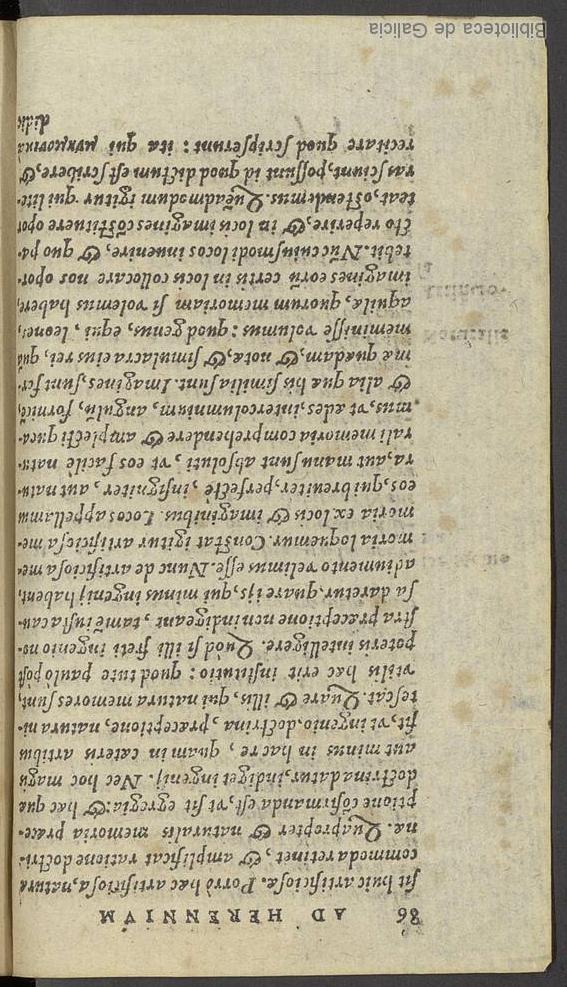 86 AD HERENNIVM
sit huic artificiosæ. Porrò hæc artificiosa, naturæ
commoda retinet, & amplificat ratione doctri-
næ. Quapropter & naturalis memoria præce-
ptione cōfirmanda est, vt sit egregia: & hæc quæ
doctrina datur, indiget ingenij. Nec hoc magis
aut minus in hac re, quàm in cæteris artibus
fit, vt ingenio, doctrina, præceptione, natura ni-
tescat. Quare & illis, qui natura memores sunt,
vtilis hæc erit institutio: quod tute paulò pòst
poteris intelligere. Quòd si illi freti ingenio no-
stra præceptione non indigeant, tamē iusta cau-
sa daretur, quare ijs, qui minus ingenij habent,
adiumento velimus esse. Nunc de artificiosa me-
moria loquemur. Constat igitur artificiosa me-
moria ex locis & imaginibus. Locos appellamus
eos, qui breuiter, perfectè, insigniter, aut natu-
ra, aut manu sunt absoluti, vt eos facilè natu-
rali memoria comprehendere & amplecti quea-
mus, vt ædes, intercolumnium, angulū, fornicē,
& alia quæ his similia sunt. Imagines, sunt for-
mæ quædam, & notæ, & simulacra eius rei, quā
meminisse volumus: quod genus, equi, leones,
aquilæ, quorum memoriam si volemus habere,
imagines eorū certis in locis collocare nos opor-
tebit. Nūc cuiusmodi locos inuenire, & quo pa-
cto reperire, & in locis imagines cōstituere opor
teat, ostendemus. Quēadmodum igitur qui lite-
ras sciunt, possunt id quod dictum est scribere, &
recitare quod scripserunt: ita qui μνημονικὰ
didic
Biblioteca de Galicia